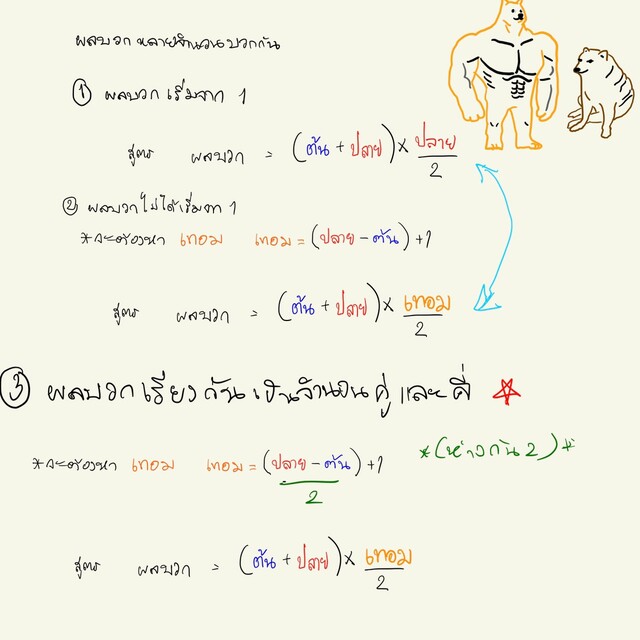 ผลบวก หลายจำนวนบวกกัน
① ผลบวก เริ่มจาก 1
สูตร ผลบวก = (ต้น + ปลาย) × ปลาย/2
② ผลบวกไม่ได้เริ่มจาก 1
*จะต้องหา เทอม เทอม = (ปลาย - ต้น) + 1
สูตร ผลบวก = (ต้น + ปลาย) × เทอม/2
③ ผลบวกเรียงกันเป็นจำนวนคู่ และคี่
*จะต้องหา เทอม เทอม = (ปลาย - ต้น)/2 + 1 *(ห่างกัน 2)*
สูตร ผลบวก = (ต้น + ปลาย) × เทอม/2